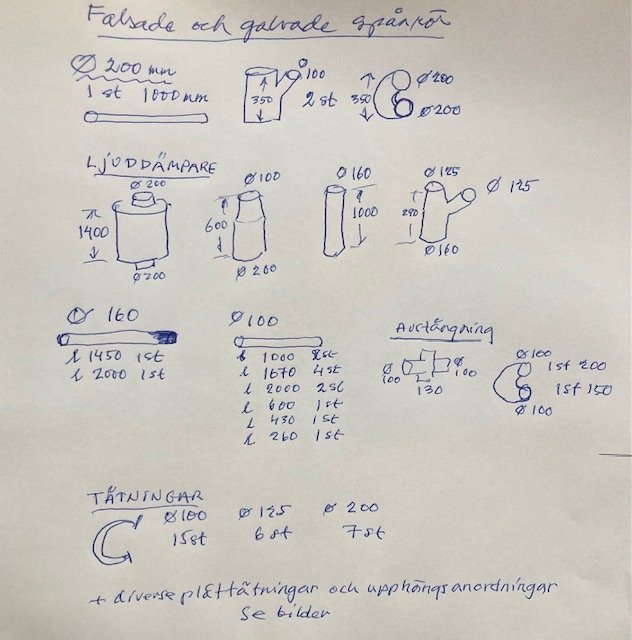 Falsade och galvade spånrör
Ø 200 mm
1 st 1000 mm
350
Ø 100
2 st
350
Ø 200
Ø 200
LJUDDÄMPARE
Ø 200
1400
Ø 200
Ø 100
600
Ø 200
Ø 160
1000
Ø 125
Ø 125
290
Ø 160
Ø 160
l 1450 1st
l 2000 1st
Ø 100
l 1000 2st
l 1670 4st
l 2000 2st
l 600 1st
l 430 1st
l 260 1st
Avstängning
Ø 100
Ø 100
130
Ø 100
1st 200
1st 150
Ø 100
TÄTNINGAR
Ø 100 Ø 125 Ø 200
15st 6st 7st
+ diverse plåttätningar och upphängsanordningar
Se bilder